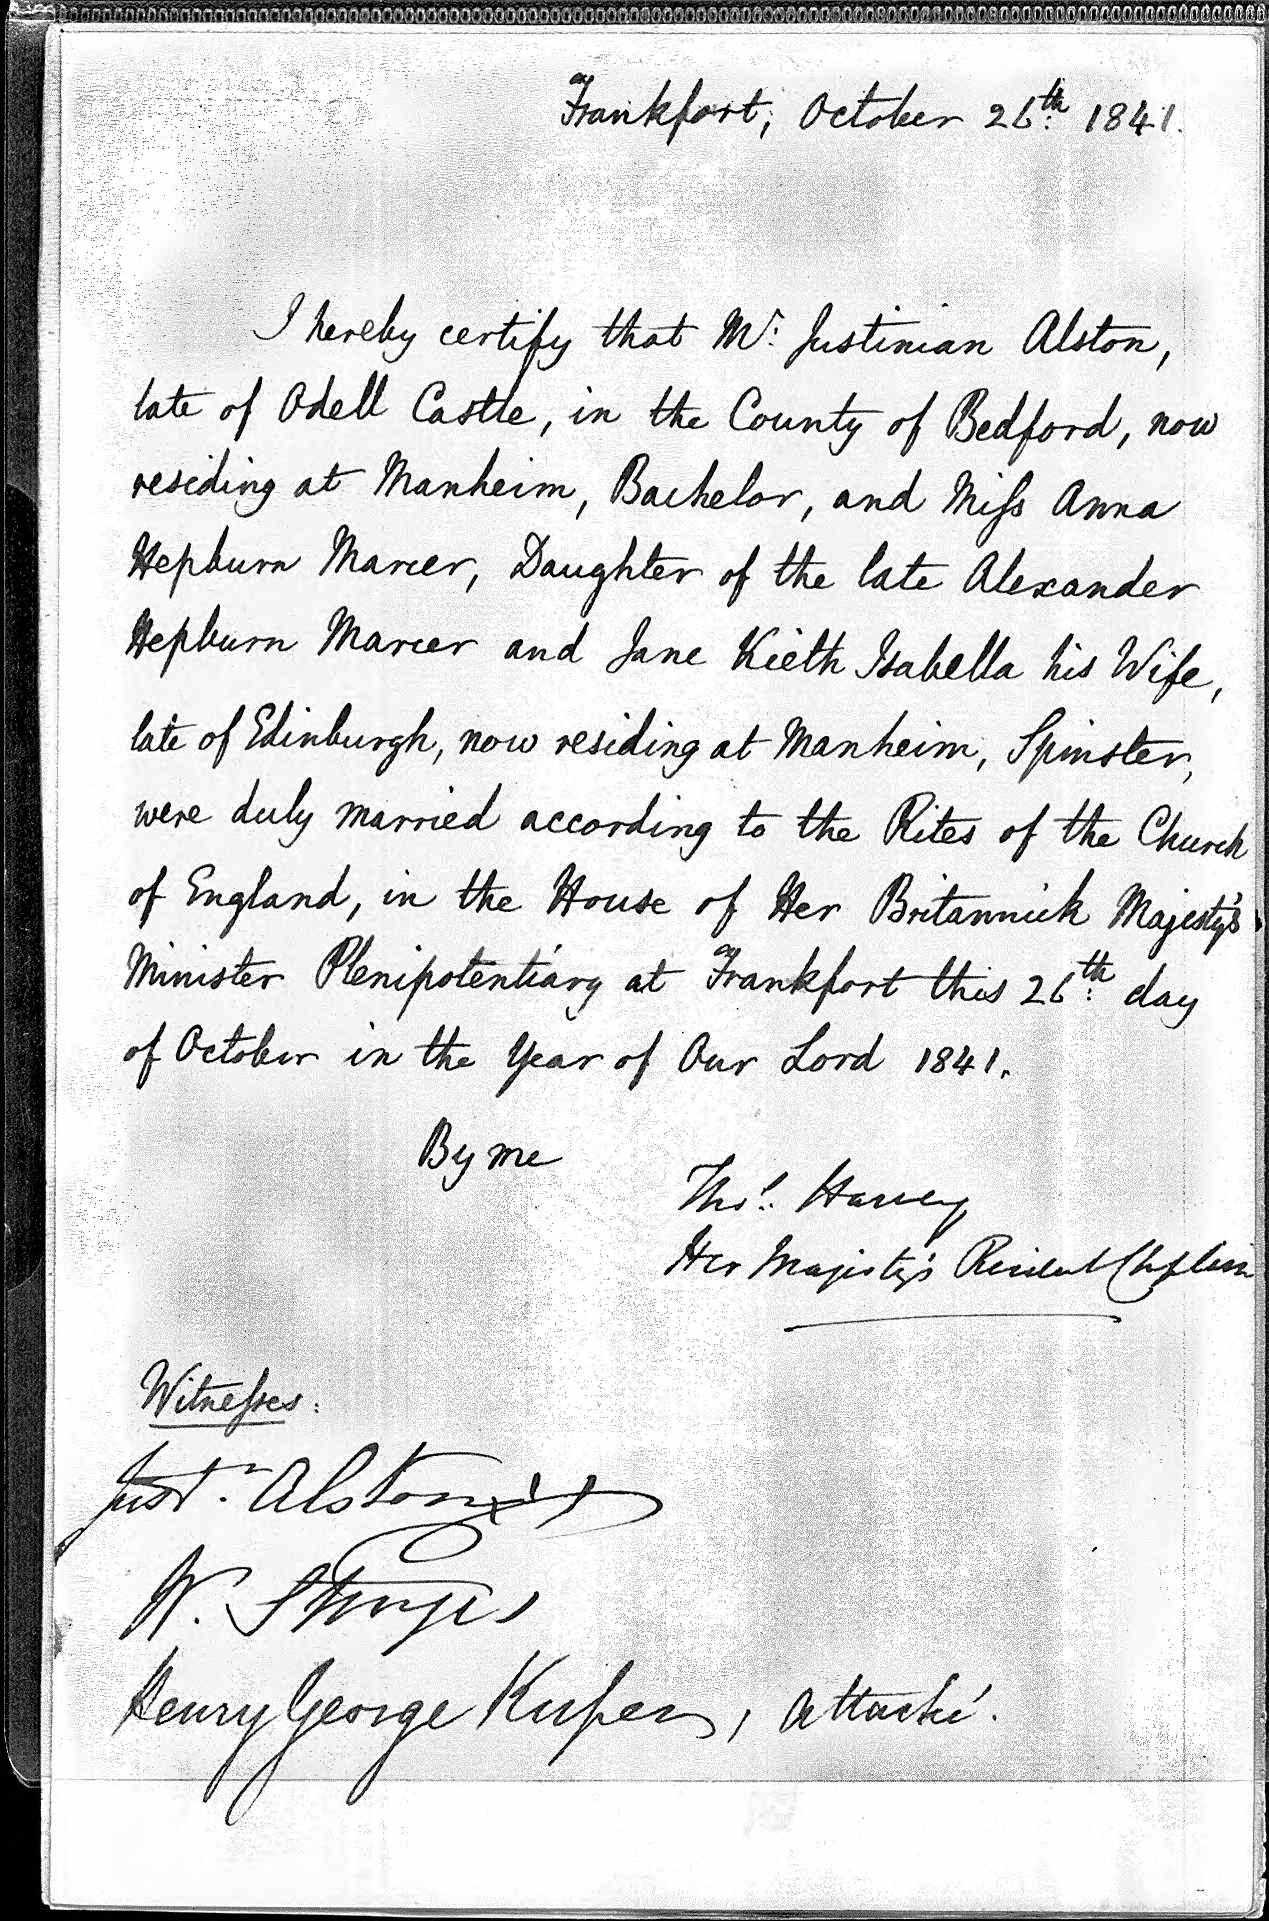 Frankfort, October 26th. 1841.
I hereby certify that Mr. Justinian Alston,
late of Odell Castle, in the County of Bedford, now
residing at Manheim, Bachelor, and Miſs Anna
Hepburn Marcer, Daughter of the late Alexander
Hepburn Marcer and Jane Kieth Isabella his Wife,
late of Edinburgh, now residing at Manheim, Spinster,
were duly married according to the Rites of the Church
of England, in the House of Her Britannick Majesty's
Minister Plenipotentiary at Frankfort this 26th. day
of October in the Year of Our Lord 1841.
By me
Thos. Harvey
Her Majesty's Resident Chaplain
Witneſses:
Justn. Alston
W. Sturges
Henry George Kuper, Attaché.